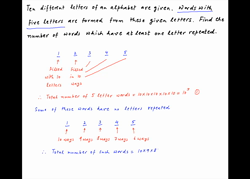 Ten different letters of an alphabet are given. Words with
five letters are formed from these given letters. Find the
number of words which have at least one letter repeated.
1 2 3 4 5
filled filled
with 10 in 10
letters ways
∴ Total number of 5 letter words = 10×10×10×10×10 = 10⁵ ①
Some of these words have no letters repeated
1 2 3 4 5
10 ways 9 ways 8 ways 7 ways 6 ways
∴ Total number of such words = 10×9×8